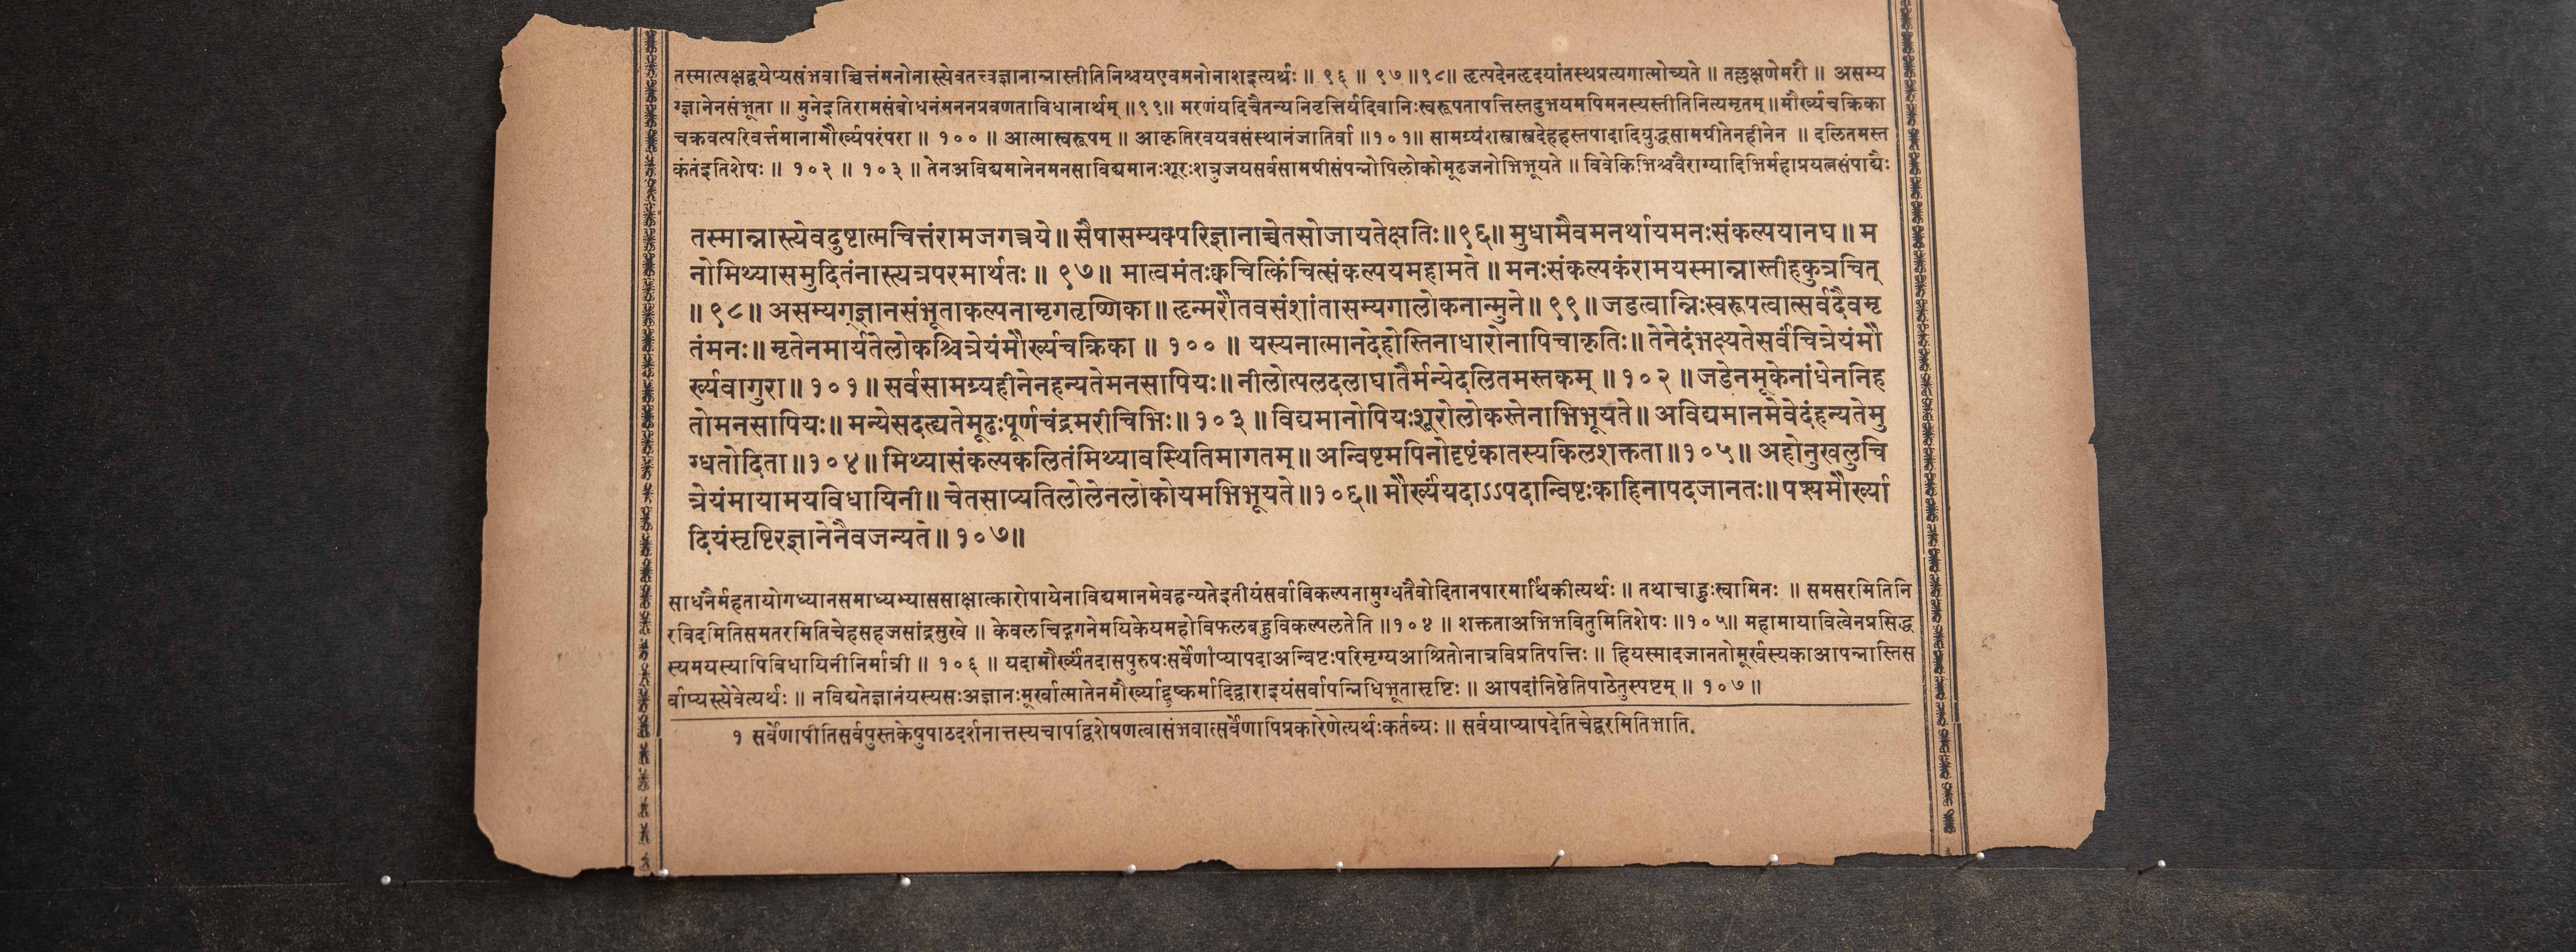 तस्मात्पक्षद्वयेप्यसंभवाच्चित्तंमनोनास्त्येवतत्त्वज्ञानान्नास्तीतिनिश्चयएवमनोनाशइत्यर्थः ॥ ९६ ॥ ९७ ॥९८॥ हृत्पदेनहृदयांतस्थप्रत्यगात्मोच्यते ॥ तल्लक्षणेमरौ ॥ असम्य
ग्ज्ञानेनसंभूता ॥ मुनेइतिरामसंबोधनंमननप्रवणताविधानार्थम् ॥९९॥ मरणंयदिचैतन्यनिवृत्तिर्यदिवानिःस्वरूपतापत्तिस्तदुभयमपिमनस्यस्तीतिनित्यमृतम् ॥मौर्ख्यचक्रिका
चक्रवत्परिवर्त्तमानामौर्ख्यपरंपरा ॥ १०० ॥ आत्मास्वरूपम् ॥ आकृतिरवयवसंस्थानंजातिर्वा ॥१०१॥ सामग्र्यंशस्त्रास्त्रदेहहस्तपादादियुद्धसामग्रीतेनहीनेन ॥ दलितमस्त
कंतंइतिशेषः ॥ १०२ ॥ १०३ ॥ तेनअविद्यमानेनमनसाविद्यमानःशूरःशत्रुजयसर्वसामग्रीसंपन्नोपिलोकोमूढजनोभिभूयते ॥ विवेकिभिश्चवैराग्यादिभिर्महाप्रयत्नसंपाद्यैः
तस्मान्नास्त्येवदुष्टात्मचित्तंरामजगत्त्रये॥ सैषासम्यक्परिज्ञानाच्चेतसोजायतेक्षतिः॥९६॥ मुधामैवमनर्थायमनःसंकल्पयानघ॥ म
नोमिथ्यासमुदितंनास्त्यत्रपरमार्थतः॥ ९७॥ मात्वमंतःक्वचित्किंचित्संकल्पयमहामते ॥ मनःसंकल्पकंरामयस्मान्नास्तीहकुत्रचित्
॥९८॥ असम्यग्ज्ञानसंभूताकल्पनामृगतृष्णिका॥ हृन्मरौतवसंशांतासम्यगालोकनान्मुने॥ ९९॥ जडत्वान्निःस्वरूपत्वात्सर्वदैवमृ
तंमनः॥ मृतेनमार्यतेलोकश्चित्रेयंमौर्ख्यचक्रिका ॥ १०० ॥ यस्यनात्मानदेहोस्तिनाधारोनापिचाकृतिः॥ तेनेदंभक्ष्यतेसर्वंचित्रेयंमौ
र्ख्यवागुरा॥१०१॥ सर्वसामग्र्यहीनेनहन्यतेमनसापियः॥ नीलोत्पलदलाघातैर्मन्येदलितमस्तकम् ॥१०२ ॥जडेनमूकेनांधेननिह
तोमनसापियः॥ मन्येसदह्यतेमूढःपूर्णचंद्रमरीचिभिः॥१०३॥ विद्यमानोपियःशूरोलोकस्तेनाभिभूयते॥ अविद्यमानमेवेदंहन्यतेमु
ग्धतोदिता॥१०४॥ मिथ्यासंकल्पकलितंमिथ्यावस्थितिमागतम्॥ अन्विष्टमपिनोदृष्टंकातस्यकिलशक्तता॥१०५॥ अहोनुखलुचि
त्रेयंमायामयविधायिनी॥ चेतसाप्यतिलोलेनलोकोयमभिभूयते॥१०६॥ मौर्ख्यंयदाऽऽपदान्विष्टःकाहिनापदजानतः॥ पश्यमौर्ख्या
दियंसृष्टिरज्ञानेनैवजन्यते॥१०७॥
साधनैर्महतायोगध्यानसमाध्यभ्याससाक्षात्कारोपायेनाविद्यमानमेवहन्यतेइतीयंसर्वाविकल्पनामुग्धतैवोदितानपारमार्थिकीत्यर्थः ॥ तथाचाहुःस्वामिनः ॥ समसरमितिनि
रविदमितिसमतरमितिचेहसहजसांद्रसुखे ॥ केवलचिद्गगनेमयिकेयमहोविफलबहुविकल्पलतेति ॥१०४ ॥ शक्तताअभिभवितुमितिशेषः ॥१०५॥ महामायावित्वेनप्रसिद्ध
स्यमयस्यापिविधायिनीनिर्मात्री ॥ १०६ ॥ यदामौर्ख्यंतदासपुरुषःसर्वेणाप्यापदाअन्विष्टःपरिमृग्यआश्रितोनात्रविप्रतिपत्तिः ॥ हियस्मादजानतोमूर्खस्यकाआपन्नास्तिस
र्वाप्यस्त्येवेत्यर्थः ॥ नविद्यतेज्ञानंयस्यसःअज्ञानःमूर्खात्मातेनमौर्ख्याद्दुष्कर्मादिद्वाराइयंसर्वापन्निधिभूतासृष्टिः ॥ आपदांनिष्ठेतिपाठेतुस्पष्टम् ॥ १०७॥
१ सर्वेणापीतिसर्वपुस्तकेषुपाठदर्शनात्तस्यचापद्विशेषणत्वासंभवात्सर्वेणापिप्रकारेणेत्यर्थःकर्तव्यः ॥ सर्वयाप्यापदेतिचेद्वरमितिभाति.